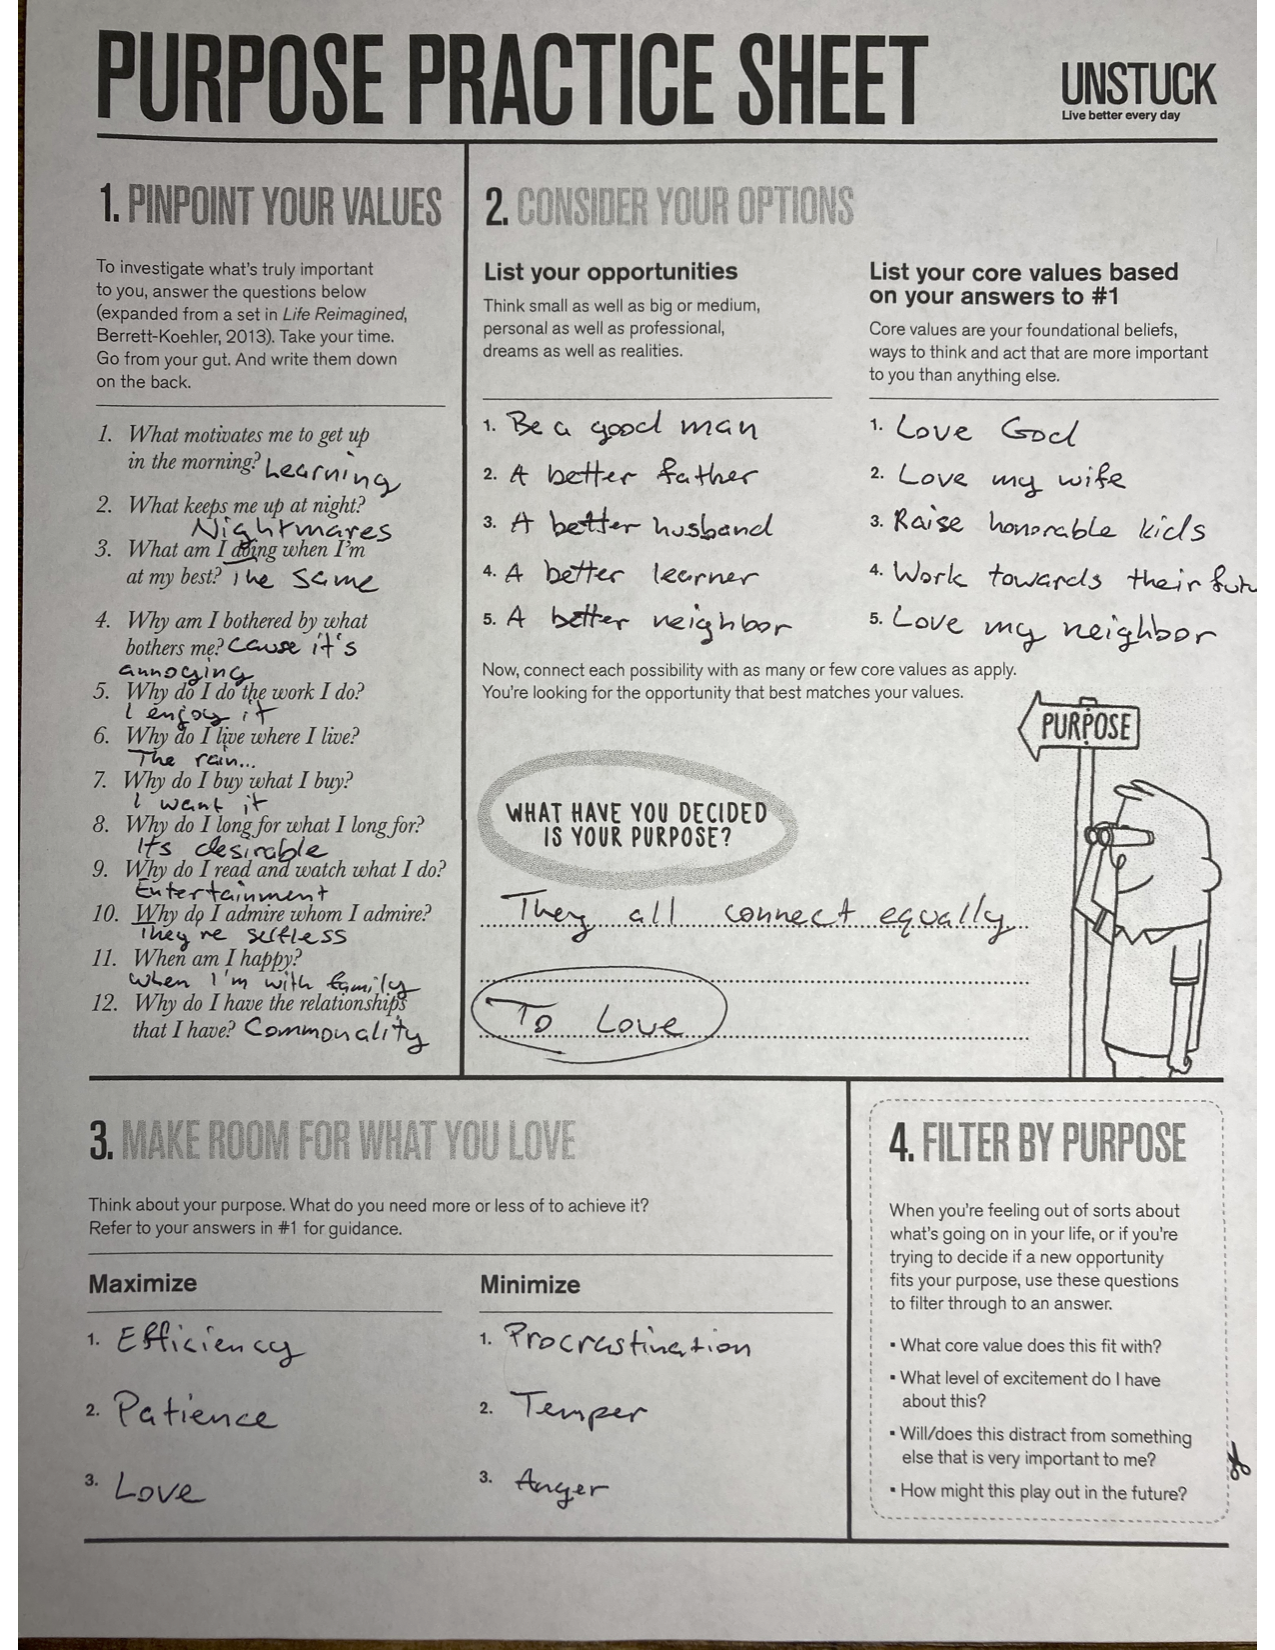 PURPOSE PRACTICE SHEET
UNSTUCK
Live better every day
1. PINPOINT YOUR VALUES
To investigate what's truly important
to you, answer the questions below
(expanded from a set in Life Reimagined,
Berrett-Koehler, 2013). Take your time.
Go from your gut. And write them down
on the back.
1. What motivates me to get up
in the morning? Learning
2. What keeps me up at night?
Nightmares
3. What am I doing when I'm
at my best? The same
4. Why am I bothered by what
bothers me? Cause it's
annoying
5. Why do I do the work I do?
I enjoy it
6. Why do I live where I live?
The rain...
7. Why do I buy what I buy?
I want it
8. Why do I long for what I long for?
It's desirable
9. Why do I read and watch what I do?
Entertainment
10. Why do I admire whom I admire?
They're selfless
11. When am I happy?
When I'm with family
12. Why do I have the relationships
that I have? Commonality
2. CONSIDER YOUR OPTIONS
List your opportunities
Think small as well as big or medium,
personal as well as professional,
dreams as well as realities.
1. Be a good man
2. A better father
3. A better husband
4. A better learner
5. A better neighbor
List your core values based
on your answers to #1
Core values are your foundational beliefs,
ways to think and act that are more important
to you than anything else.
1. Love God
2. Love my wife
3. Raise honorable kids
4. Work towards their futu
5. Love my neighbor
Now, connect each possibility with as many or few core values as apply.
You're looking for the opportunity that best matches your values.
PURPOSE
WHAT HAVE YOU DECIDED
IS YOUR PURPOSE?
They all connect equally
To Love
3. MAKE ROOM FOR WHAT YOU LOVE
Think about your purpose. What do you need more or less of to achieve it?
Refer to your answers in #1 for guidance.
Maximize
1. Efficiency
2. Patience
3. Love
Minimize
1. Procrastination
2. Temper
3. Anger
4. FILTER BY PURPOSE
When you're feeling out of sorts about
what's going on in your life, or if you're
trying to decide if a new opportunity
fits your purpose, use these questions
to filter through to an answer.
▪ What core value does this fit with?
▪ What level of excitement do I have
about this?
▪ Will/does this distract from something
else that is very important to me?
▪ How might this play out in the future?